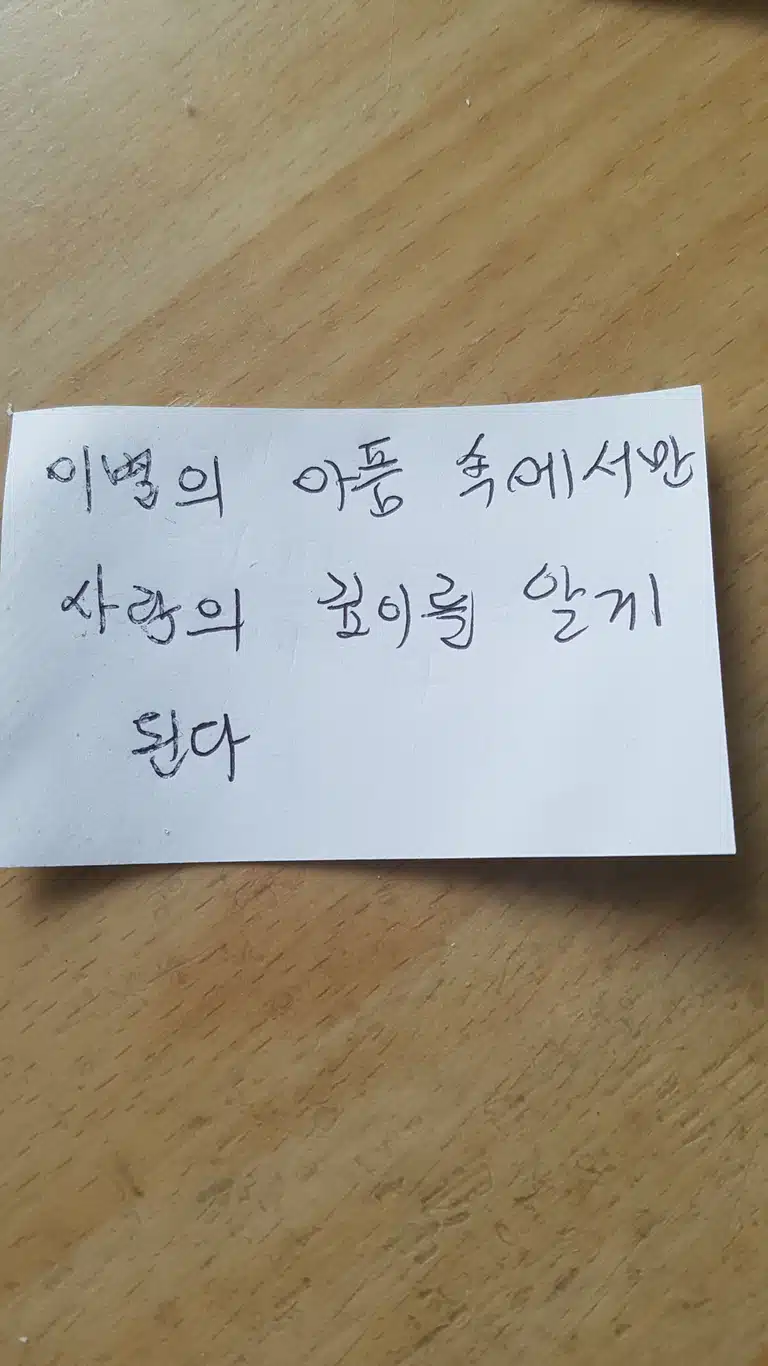 이별의 아픔 속에서만
사랑의 깊이를 알게
된다